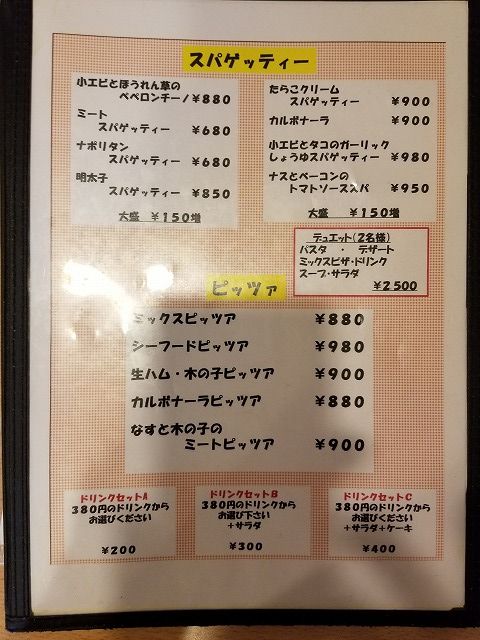 スパゲッティー
小エビとほうれん草の
ペペロンチーノ ¥880
ミート
スパゲッティー ¥680
ナポリタン
スパゲッティー ¥680
明太子
スパゲッティー ¥850
大盛 ¥150増
たらこクリーム
スパゲッティー ¥900
カルボナーラ ¥900
小エビとタコのガーリック
しょうゆスパゲッティー ¥980
ナスとベーコンの
トマトソーススパ ¥950
大盛 ¥150増
デュエット(2名様)
パスタ ・ デザート
ミックスピザ・ドリンク
スープ・サラダ
¥2500
ピッツァ
ミックスピッツア ¥880
シーフードピッツア ¥980
生ハム・木の子ピッツア ¥900
カルボナーラピッツア ¥880
なすと木の子の
ミートピッツア ¥900
ドリンクセットA
380円のドリンクから
お選びください
¥200
ドリンクセットB
380円のドリンクから
お選び下さい
+サラダ
¥300
ドリンクセットC
380円のドリンクから
お選びください
+サラダ+ケーキ
¥400